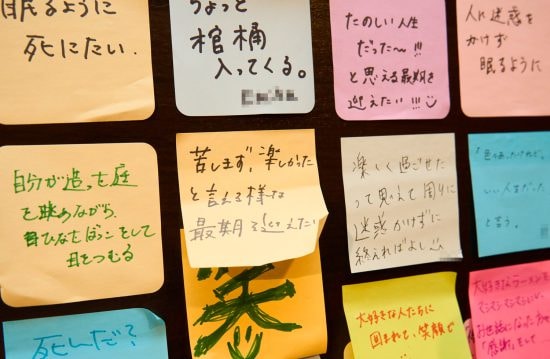 眠るように
死にたい.
ちょっと
棺桶
入ってくる。
たのしい人生
だった〜!!!
と思える最期を
迎えたい!!!
人に迷惑を
かけず
眠るように
自分が造った庭
を眺めながら、
日ひなたぼっこをして
目をつむる
苦しまず,楽しかった
と言える様な
最期を迎えたい
笑
楽しく過ごせた
って思えて周りに
迷惑かけずに
終えればよし
いい人生だった
と言う。
死んだ?
大好きな人たちに
囲まれて、笑顔で
大好きなラーメンを
お世話になった
「感謝」をして